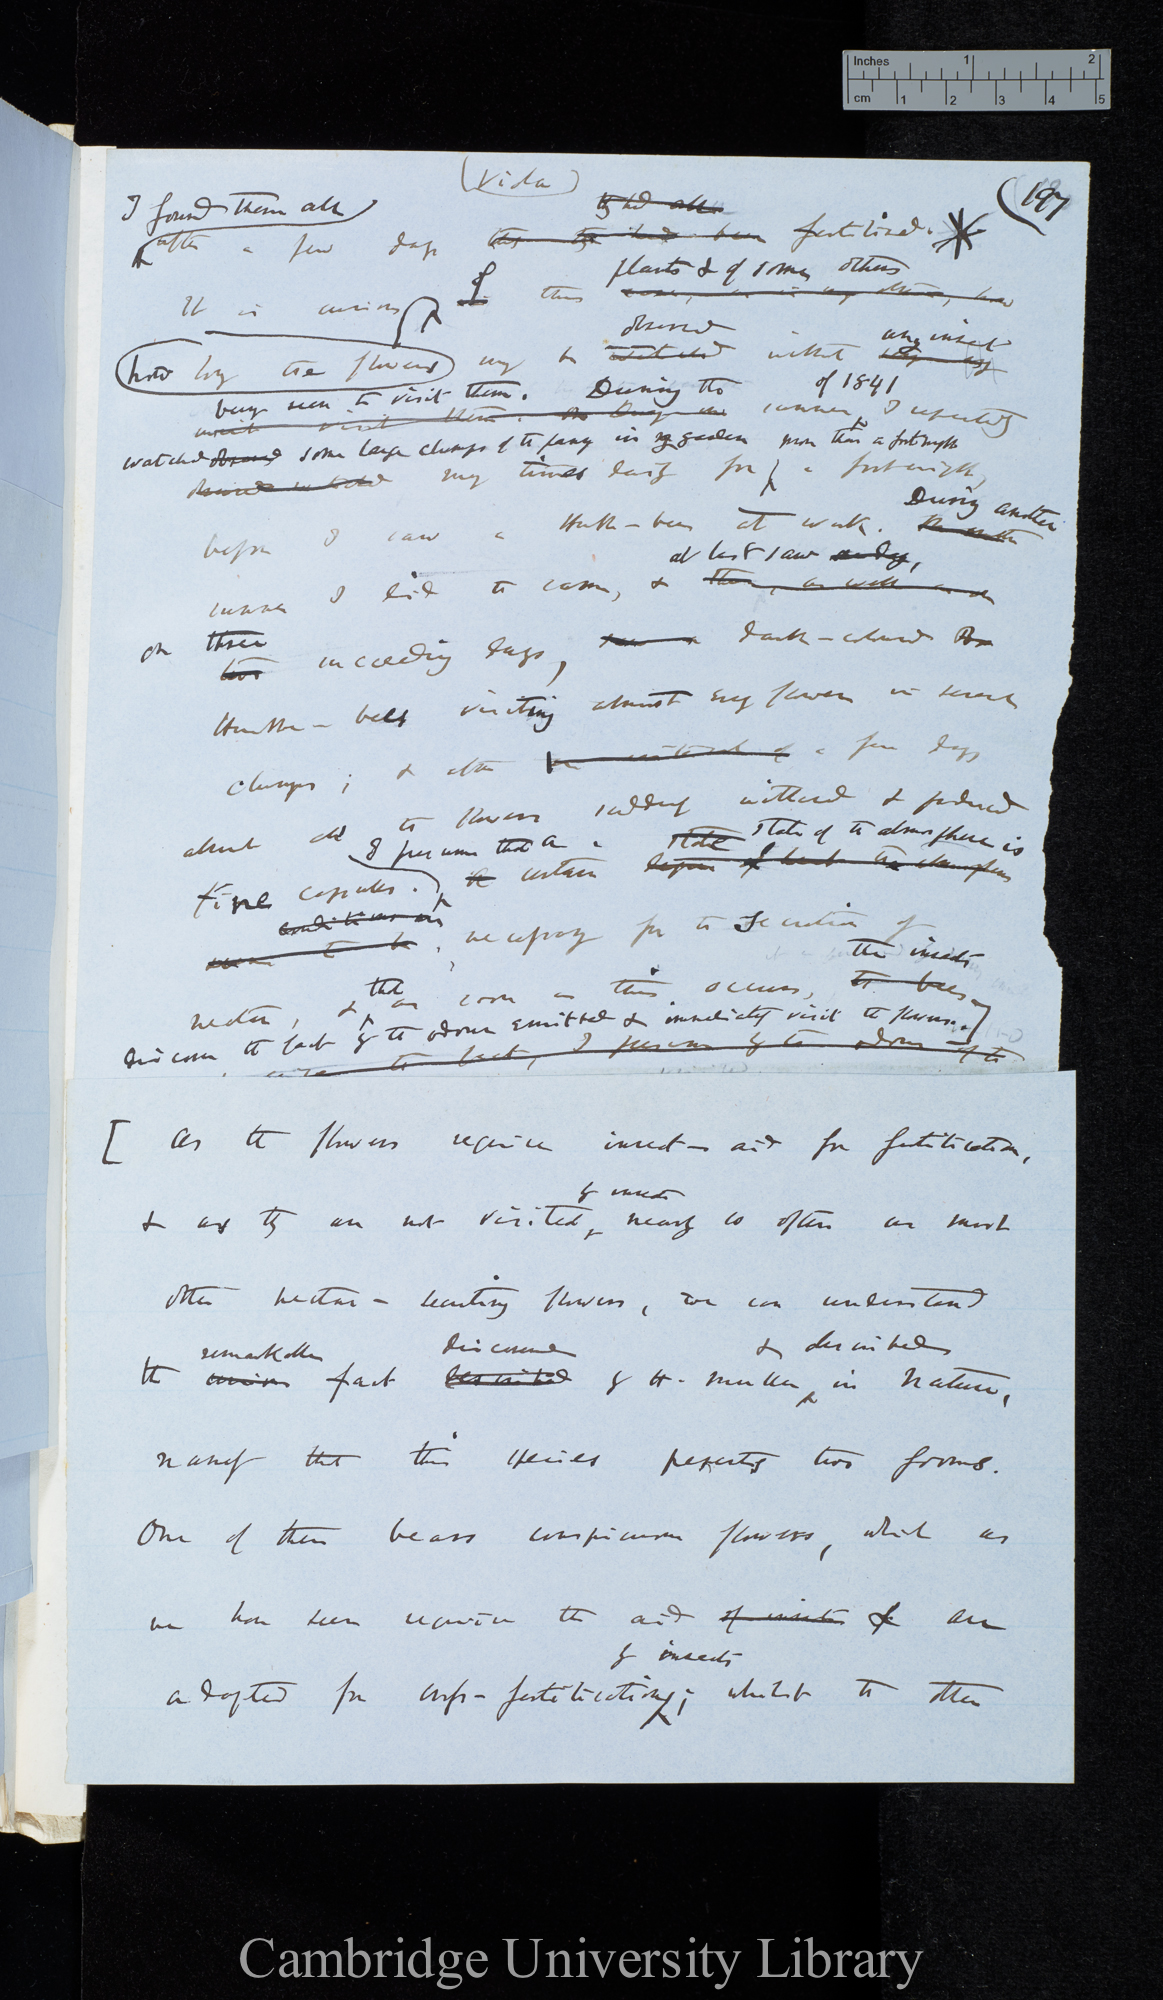 Inches 1 2
cm 1 2 3 4 5
(Viola)
197
I found them all
they had all
after a few days been fertilised.
plants & of some others
It is curious of these
observed any insect
how long the flowers may be watched without
being seen to visit them. During the of 1841
visit them. summer, I repeatedly
watched observed some large clumps of the pansy in my garden more than a fortnight
many times daily for a fortnight,
During another
before I saw a Humble-bee at work.
at last saw
summer I did the same, &
on three
two succeeding days, saw a dark-coloured
Humble-bees visiting almost every flower in several
clumps; & after a few days
almost all the flowers suddenly withered & produced
I presume that a state state of the atmosphere is
fine capsules. certain
conditions
seems to be, necessary for the secretion of
that the insects
nectar, & as soon as this occurs, the bees
discover the fact by the odour emitted & immediately visit the flowers.
the fact, I presume by the odour of the
[ As the flowers require insect-aid for fertilisation,
by insects
& as they are not visited, nearly so often as most
other nectar-secreting flowers, we can understand
remarkable discovered & described
the curious fact described by H. Müller in Nature,
namely that this species presents two forms.
One of them bears conspicuous flowers, which as
we have seen require the aid of insects & are
by insects
adapted for cross-fertilisation; whilst the other
Cambridge University Library